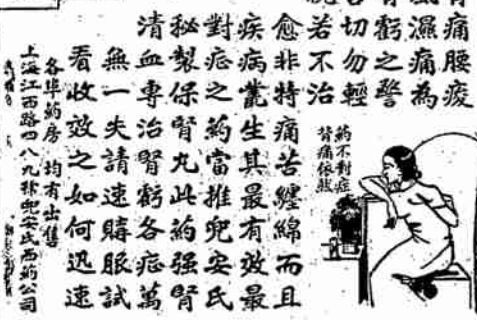 有痛腰痠
濕痛為
有虧之警
切勿輕
若不治
愈非特痛苦纏綿而且
疾病叢生其最有效最
對症之藥當推兜安氏
秘製保腎丸此藥强腎
清血專治腎虧各症萬
無一失請速購服試
看收效之如何迅速
各埠藥房均有出售
上海江西路四八九號兜安氏西藥公司
藥不對症
背痛依然